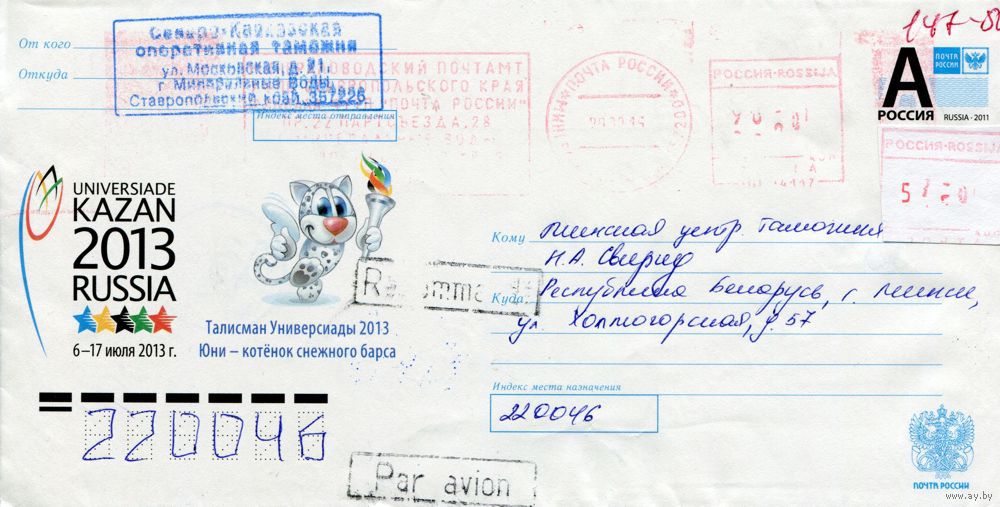 147-
От кого
Откуда
Северо-Кавказская
оперативная таможня
ул. Московская, д. 21
г Минеральные Воды
Ставропольский край 357226
ПОЧТАМТ
КРАЯ
"ПОЧТА РОССИИ"
22 ПАРТСЪЕЗДА, 28
Индекс места отправления
ПОЧТА РОССИИ
РОССИЯ-ROSSIJA
А
РОССИЯ
ПОЧТА РОССИИ
RUSSIA · 2011
РОССИЯ-ROSSIJA
UNIVERSIADE
KAZAN
2013
RUSSIA
6–17 июля 2013 г.
Талисман Универсиады 2013
Юни – котёнок снежного барса
Кому Минская центр. таможня
Н.А. Свирид
Куда Республика Беларусь, г. Минск,
ул. Холмогорская, д. 57
Индекс места назначения
220046
220046
Par avion
ПОЧТА РОССИИ
www.ay.by